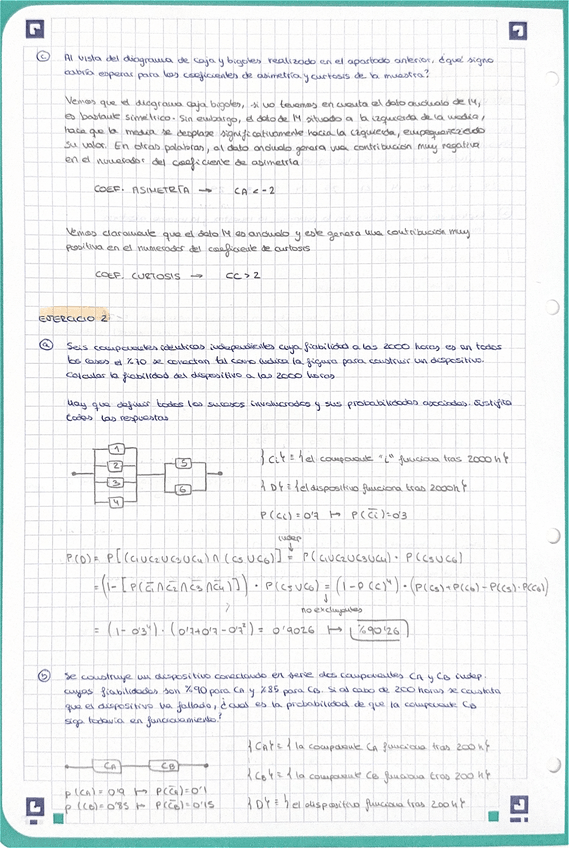 c) Al vista del diagrama de caja y bigotes realizado en el apartado anterior, ¿qué signo
cabría esperar para los coeficientes de asimetría y curtosis de la muestra?
Vemos que el diagrama caja bigotes, si no tenemos en cuenta el dato anómalo de 14,
es bastante simétrico. Sin embargo, el dato de 14 situado a la izquierda de la media,
hace que la media se desplaze significativamente hacia la izquierda, empequeñeciendo
su valor. En otras palabras, al dato anómalo genera una contribución muy negativa
en el numerador del coeficiente de asimetría
COEF. ASIMETRÍA → CA < -2
Vemos claramente que el dato 14 es anómalo y este genera una contribución muy
positiva en el numerador del coeficiente de curtosis
COEF. CURTOSIS → CC > 2
EJERCICIO 2:
a) Seis componentes idénticos independientes cuya fiabilidad a las 2000 horas es en todos
los casos el %70 se conectan tal como indica la figura para construir un dispositivo.
Calcular la fiabilidad del dispositivo a las 2000 horas
Hay que definir todos los sucesos involucrados y sus probabilidades asociadas. Justifica
todas las respuestas
1
2
3
4
5
6
{Ci} = {el componente "i" funciona tras 2000 h}
{D} = {el dispositivo funciona tras 2000h}
P(Ci) = 0'7 ↦ P(C̄i) = 0'3
indep
P(D) = P[(C1∪C2∪C3∪C4) ∩ (C5∪C6)] = P(C1∪C2∪C3∪C4) · P(C5∪C6)
= (1 - [P(C̄1∩C̄2∩C̄3∩C̄4)]) · P(C5∪C6) = (1 - P(C̄)⁴) · (P(C5) + P(C6) - P(C5)·P(C6))
no excluyentes
= (1 - 0'3⁴) · (0'7+0'7-0'7²) = 0'9026 ↦ %90'26
b) Se construye un dispositivo conectando en serie dos componentes CA y CB indep.
cuyas fiabilidades son %90 para CA y %85 para CB. Si al cabo de 200 horas se constata
que el dispositivo ha fallado, ¿cual es la probabilidad de que la componente CB
siga todavía en funcionamiento?
CA
CB
{CA} = {la componente CA funciona tras 200 h}
{CB} = {la componente CB funciona tras 200 h}
P(CA) = 0'9 ↦ P(C̄A) = 0'1
P(CB) = 0'85 ↦ P(C̄B) = 0'15
{D} = {el dispositivo funciona tras 200 h}